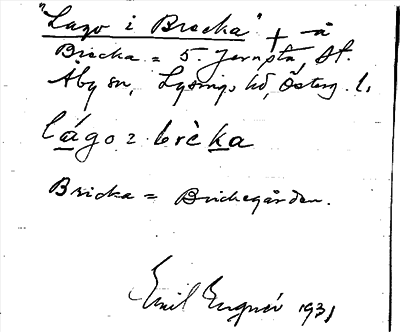 "Lago i Brecka" + -å
Brecka = 5. Jernsta, St.
Åby sn, Lysings hd, Österg. l.
lágo ı brèka
Bricka = Brickegården.
Emil Engnér 1931